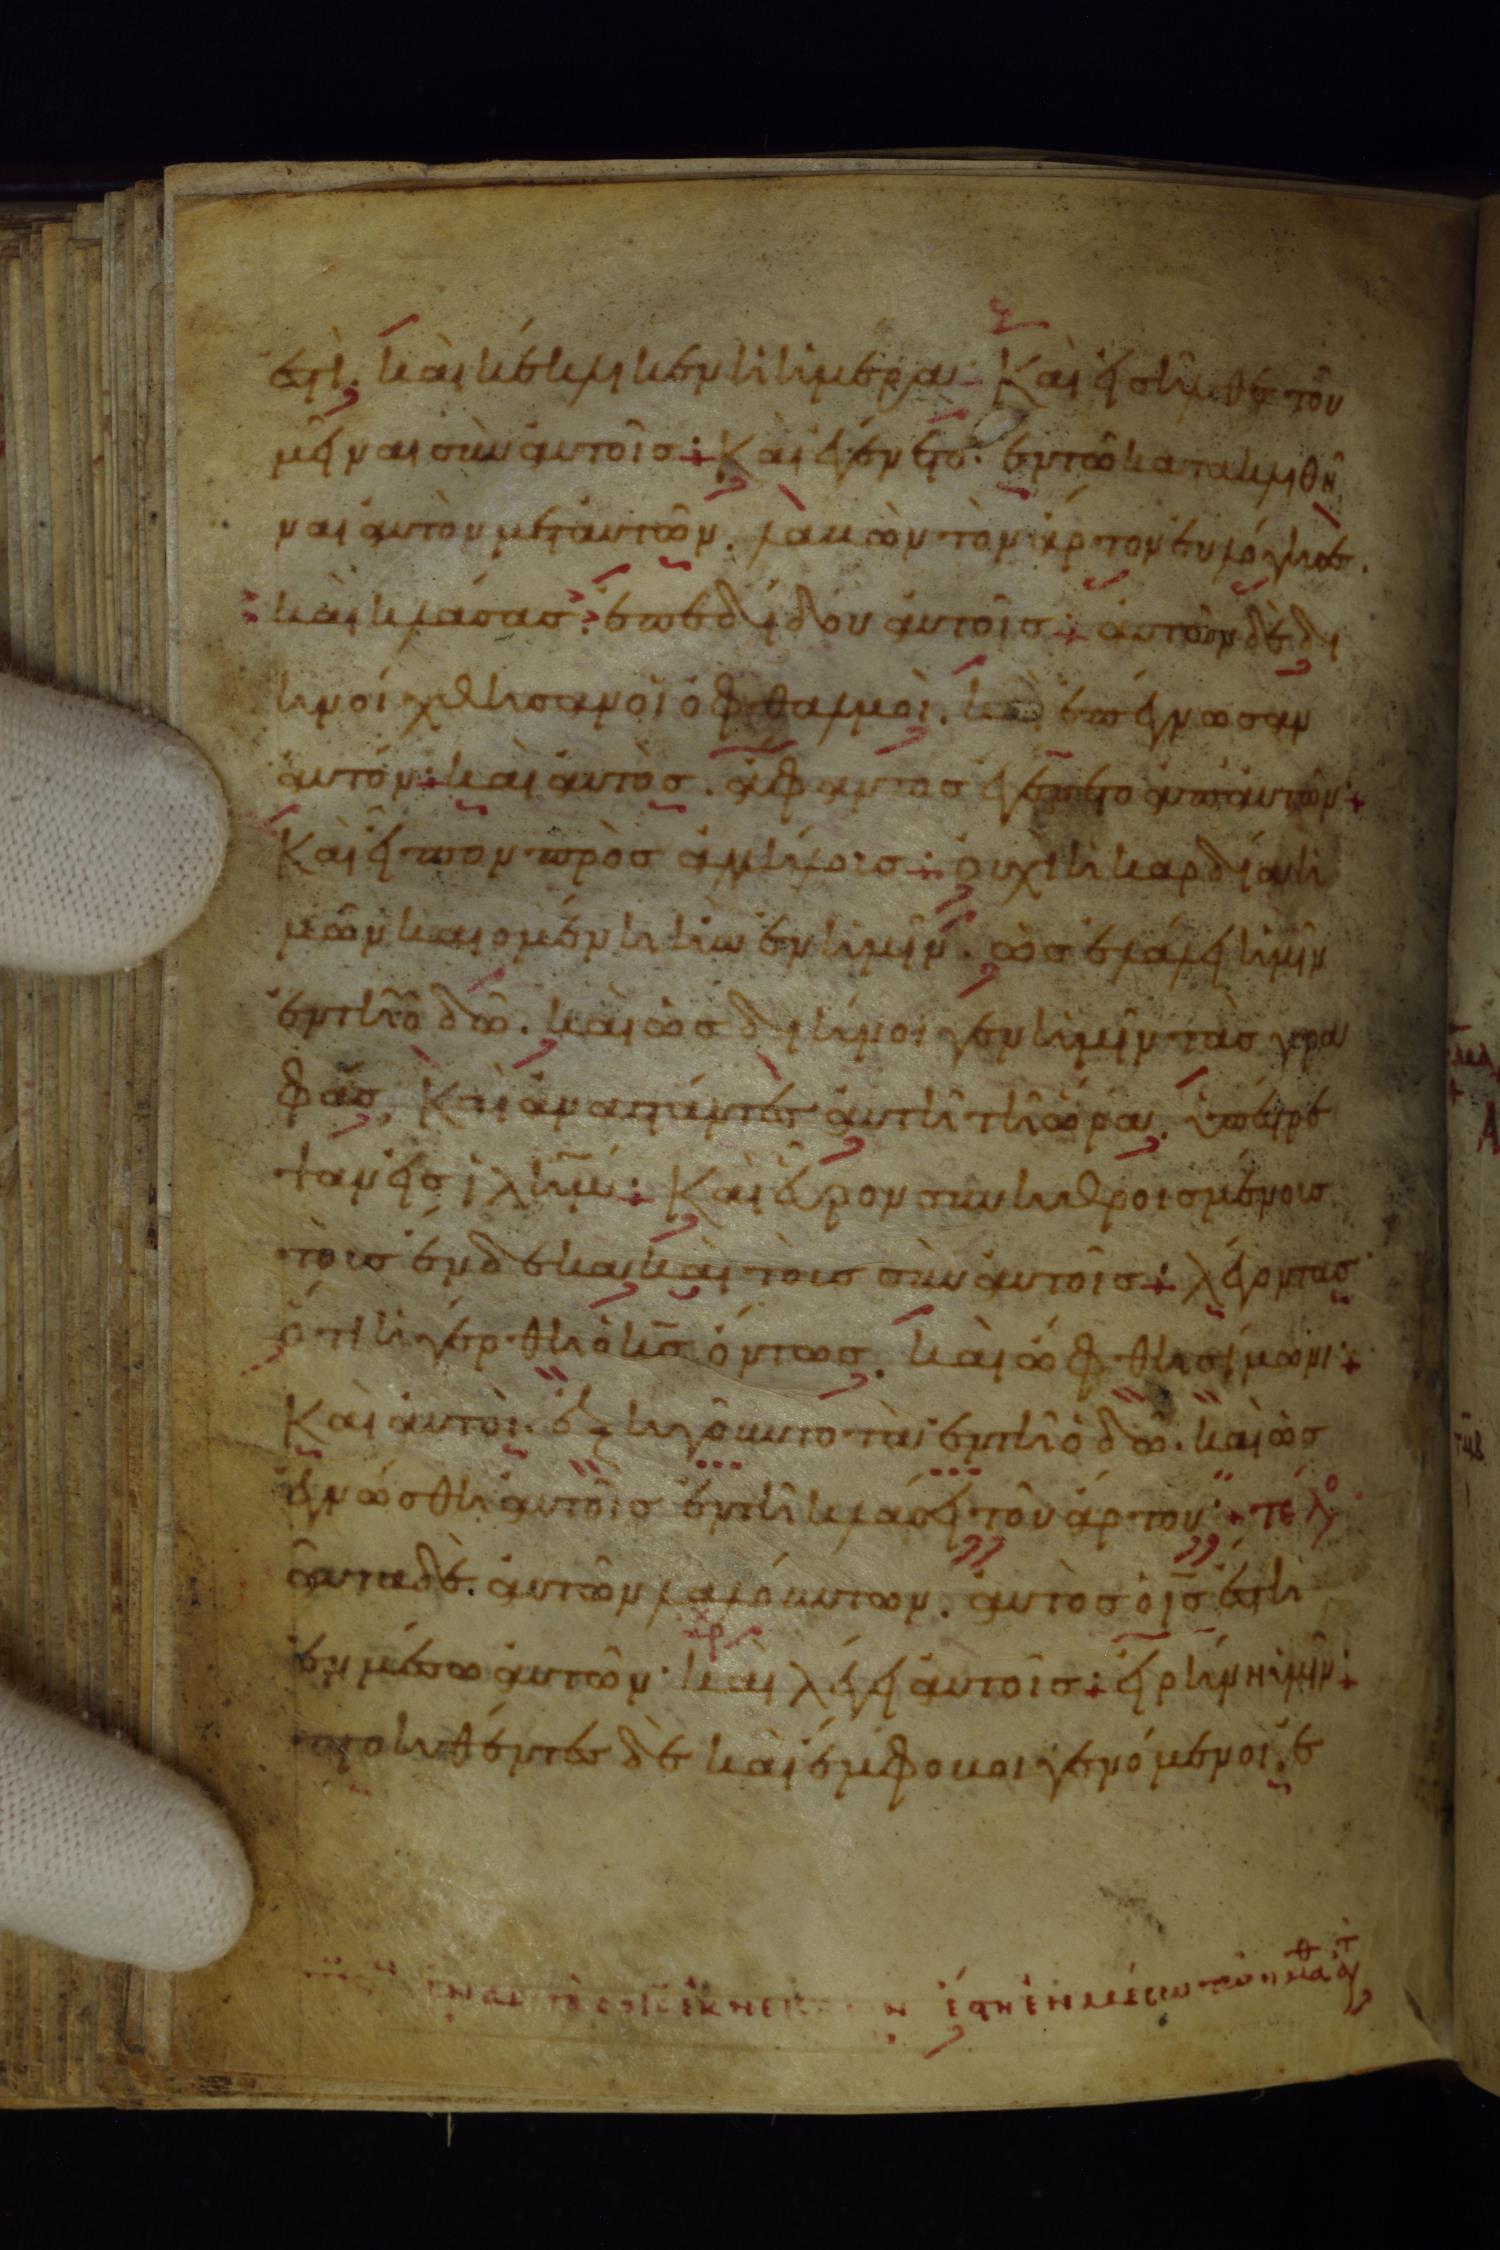 ἐστὶ. καὶ κέκλικεν ἡ ἡμέρα· Καὶ εἰσῆλθε τοῦ
μεῖναι σὺν αὐτοῖς: Καὶ ἐγένετο· ἐν τῶ κατακλιθῆ
ναι αὐτὸν μετ' αὐτῶν. λαβὼν τὸν ἄρτον εὐλόγησε.
καὶ κλάσας· ἐπεδίδου αὐτοῖς: αὐτῶν δὲ δι
ηνοίχθησαν οἱ ὀφθαλμοὶ. καὶ ἐπέγνωσαν
αὐτόν: καὶ αὐτὸς. ἄφαντος ἐγένετο ἀπ' αὐτῶν:
Καὶ εἶπον πρὸς ἀλλήλοις: οὐχὶ ἡ καρδία ἡ
μῶν καιομένη ἦν ἐν ἡμῖν. ὡς ἐλάλει ἡμῖν
ἐν τῆ ὁδῶ. καὶ ὡς διήνοιγεν ἡμῖν τὰς γρα
φάς. Καὶ ἀναστάντες αὐτῆ τῆ ὥρα. ὑπέστρε
ψαν εἰς ἰλημ: Καὶ εὗρον συνηθροισμένους
τοὺς ἕνδεκα καὶ τοὺς σὺν αὐτοῖς: λέγοντας
ὅτι ἠγέρθη ὁ κς ὄντως. καὶ ὤφθη σίμωνι:
Καὶ αὐτοὶ. ἐξηγοῦντο τὰ ἐν τῆ ὁδῶ. καὶ ὡς
ἐγνώσθη αὐτοῖς ἐν τῆ κλάσει τοῦ ἄρτου: τέλ
ταῦτα δὲ. αὐτῶν λαλούντων. αὐτὸς ὁ ις ἔστη
ἐν μέσω αὐτῶν· καὶ λέγει αὐτοῖς: εἰρήνη ὑμῖν:
πτοηθέντες δὲ καὶ ἔμφοβοι γενόμενοι. ἐ